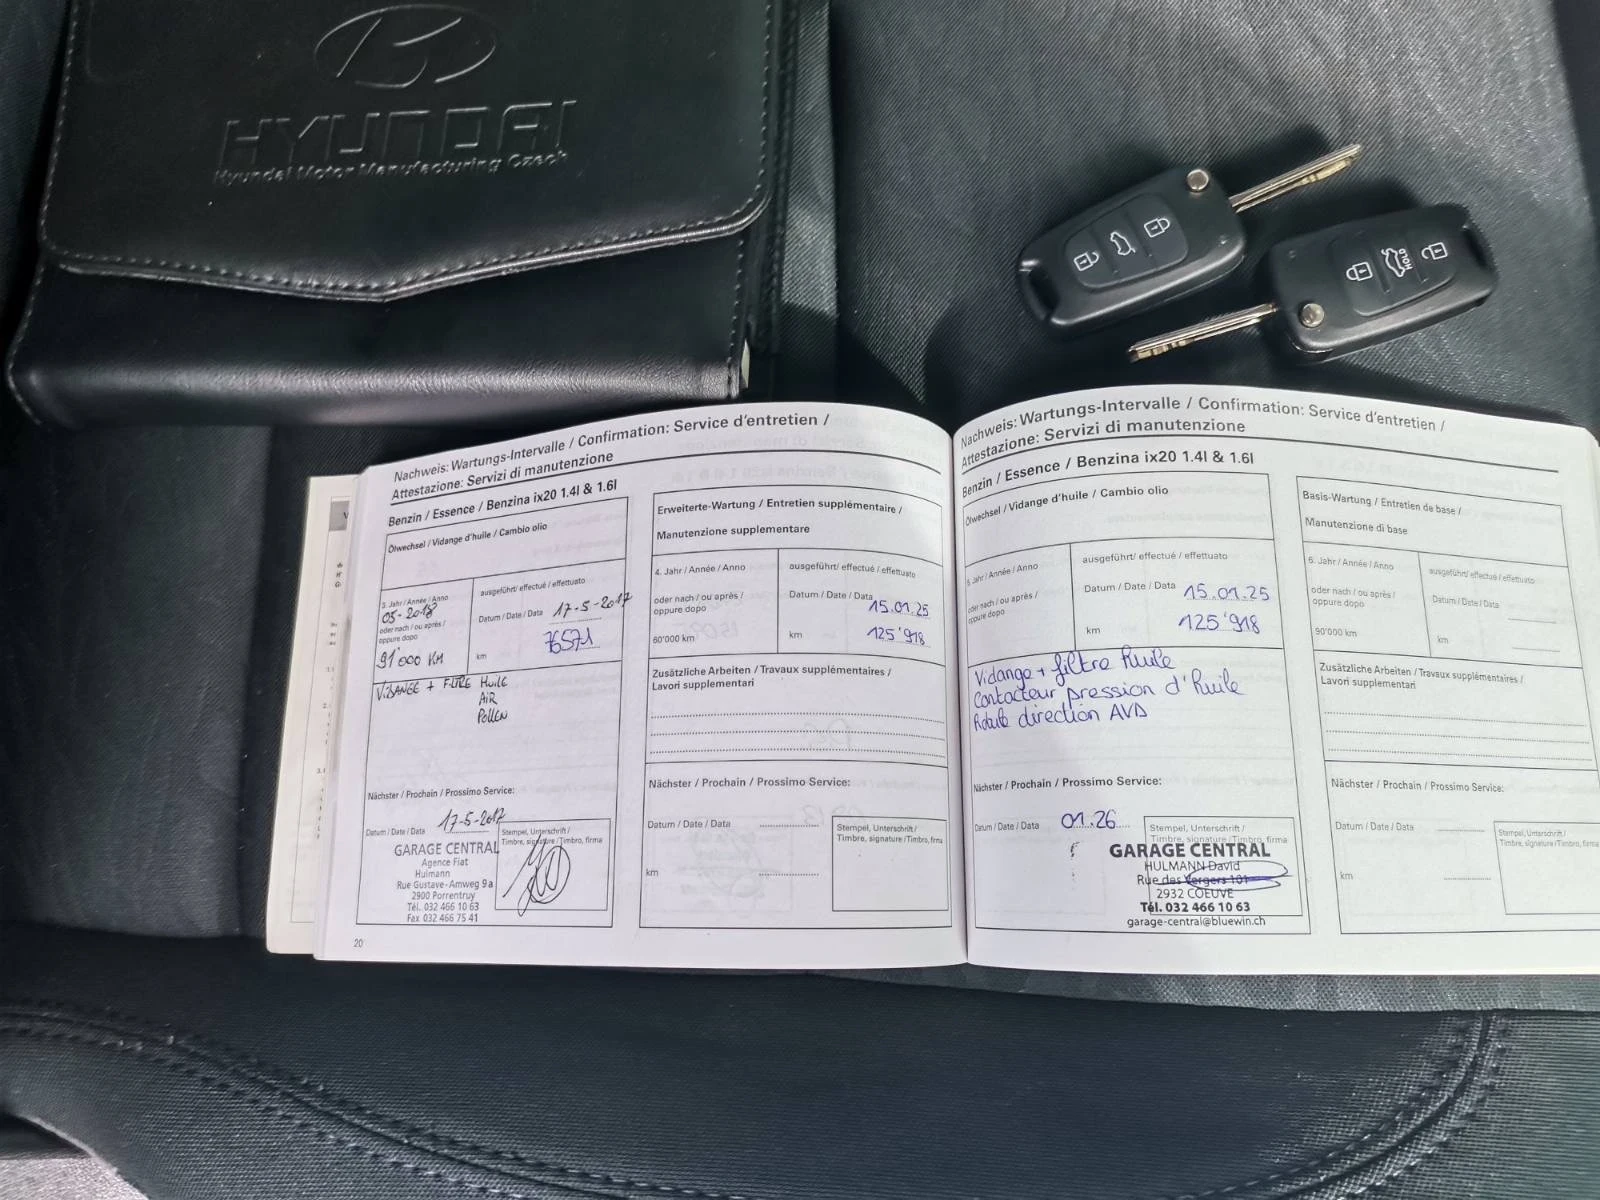 HYUNDAI
Hyundai Motor Manufacturing Czech
HOLD
Nachweis: Wartungs-Intervalle / Confirmation: Service d'entretien /
Attestazione: Servizi di manutenzione
Benzin / Essence / Benzina ix20 1.4l & 1.6l
Ölwechsel / Vidange d'huile / Cambio olio
3. Jahr / Année / Anno
05-2018
oder nach / ou après /
oppure dopo
91'000 KM
ausgeführt/ effectué / effettuato
Datum / Date / Data 17-5-2017
km 76571
VIDANGE + FILTRE HUILE
AIR
POLLEN
Nächster / Prochain / Prossimo Service:
Datum / Date / Data 17-5-2017
Stempel, Unterschrift /
Timbre, signature /Timbro, firma
GARAGE CENTRAL
Agence Fiat
Hulmann
Rue Gustave-Amweg 9a
2900 Porrentruy
Tél. 032 466 10 63
Fax 032 466 75 41
20
Erweiterte-Wartung / Entretien supplémentaire /
Manutenzione supplementare
4. Jahr / Année / Anno
oder nach / ou après /
oppure dopo
60'000 km
ausgeführt/ effectué / effettuato
Datum / Date / Data 15.01.25
km 125'918
Zusätzliche Arbeiten / Travaux supplémentaires /
Lavori supplementari
Nächster / Prochain / Prossimo Service:
Datum / Date / Data
km
Stempel, Unterschrift /
Timbre, signature /Timbro, firma
Nachweis: Wartungs-Intervalle / Confirmation: Service d'entretien /
Attestazione: Servizi di manutenzione
Benzin / Essence / Benzina ix20 1.4l & 1.6l
Ölwechsel / Vidange d'huile / Cambio olio
Jahr / Année / Anno
oder nach / ou après /
oppure dopo
ausgeführt/ effectué / effettuato
Datum / Date / Data 15.01.25
km 125'918
Vidange + filtre huile
Contacteur pression d'huile
direction AVD
Nächster / Prochain / Prossimo Service:
Datum / Date / Data 01.26
Stempel, Unterschrift /
Timbre, signature /Timbro, firma
GARAGE CENTRAL
HULMANN David
Rue des Vergers 101
2932 COEUVE
Tél. 032 466 10 63
garage-central@bluewin.ch
Basis-Wartung / Entretien de base /
Manutenzione di base
6. Jahr / Année / Anno
oder nach / ou après /
oppure dopo
90'000 km
ausgeführt/ effectué / effettuato
Datum / Date / Data
km
Zusätzliche Arbeiten / Travaux supplémentaires /
Lavori supplementari
Nächster / Prochain / Prossimo Service:
Datum / Date / Data
km
Stempel, Unterschrift /
Timbre, signature /Timbro, firma